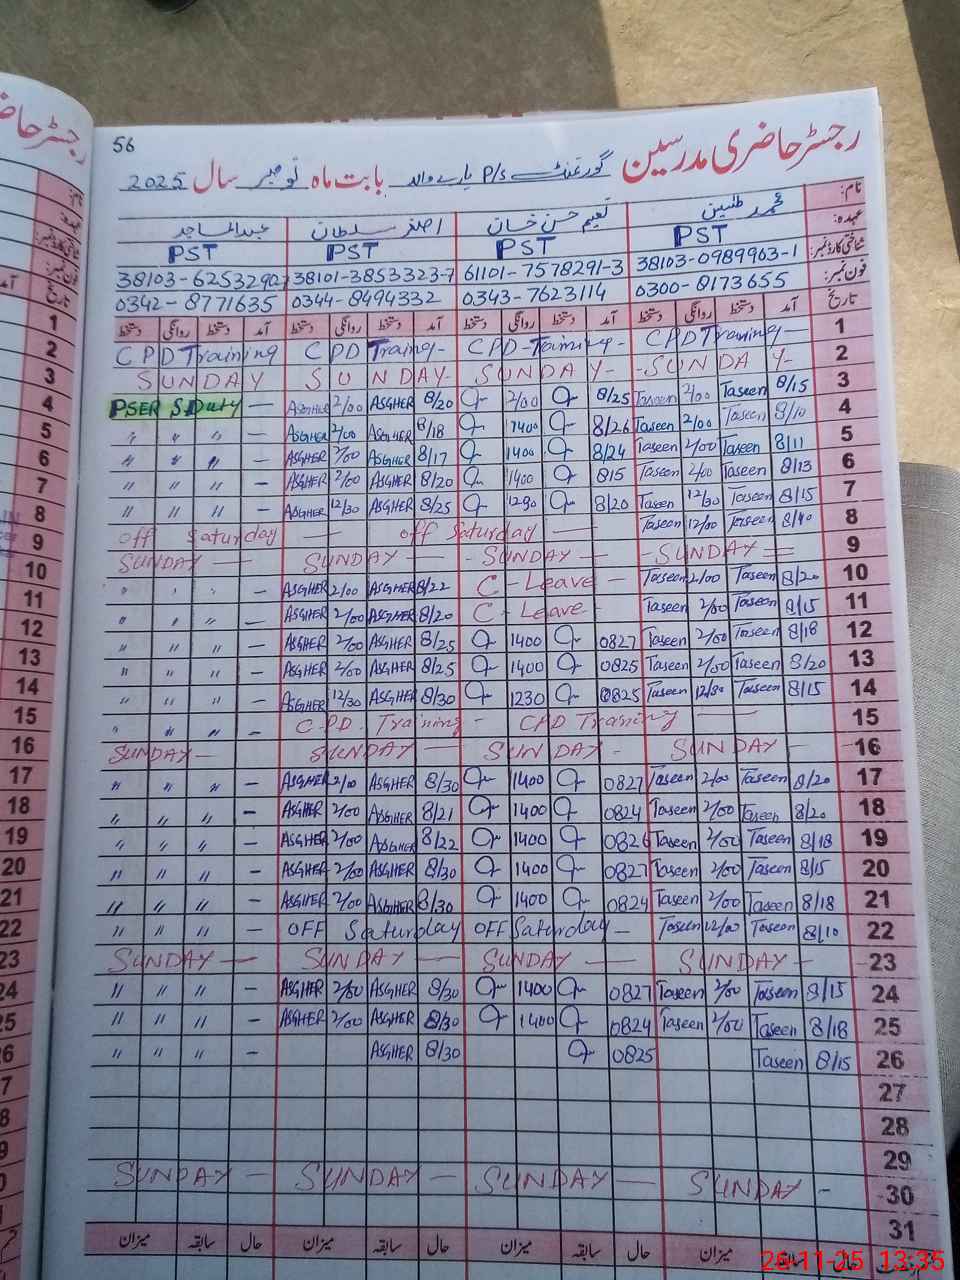 56
رجسٹر حاضری مدرسین گورنمنٹ P/S بابت ماہ نومبر سال 2025
نام: محمد تحسین نعیم حسن خان اصغر سلطان عبدالماجد
عہدہ: PST PST PST PST
شناختی کارڈ نمبر: 38103-0989903-1 61101-7578291-3 38101-3853323-7 38103-62532907
فون نمبر: 0300-8173655 0343-7623114 0344-8494332 0342-8771635
تاریخ آمد دستخط روانگی دستخط آمد دستخط روانگی دستخط آمد دستخط روانگی دستخط آمد دستخط روانگی دستخط
CPD Training CPD Training- CPD-Training- CPD Training- 1
SUNDAY SUNDAY- SUNDAY- -SUNDAY- 2
PSER S Duty — ASGHER 2/00 ASGHER 8/20 2/00 8/25 Taseen 2/00 Taseen 8/15 3
" " " — ASGHER 2/00 ASGHER 8/18 1400 8/26 Taseen 2/00 Taseen 8/10 4
" " " — ASGHER 2/00 ASGHER 8/17 1400 8/24 Taseen 2/00 Taseen 8/11 5
" " " — ASGHER 2/00 ASGHER 8/20 1400 8/15 Taseen 2/00 Taseen 8/13 6
" " " — ASGHER 12/30 ASGHER 8/25 1230 8/20 Taseen 12/30 Taseen 8/15 7
off Saturday — off Saturday — Taseen 12/00 Taseen 8/10 8
SUNDAY — SUNDAY — -SUNDAY — -SUNDAY = 9
" " " — ASGHER 2/00 ASGHER 8/22 C-Leave — Taseen 2/00 Taseen 8/20 10
" " " — ASGHER 2/00 ASGHER 8/20 C-Leave — Taseen 2/00 Taseen 8/15 11
" " " — ASGHER 2/00 ASGHER 8/25 1400 0827 Taseen 2/00 Taseen 8/18 12
" " " — ASGHER 2/00 ASGHER 8/25 1400 0825 Taseen 2/00 Taseen 8/20 13
" " " — ASGHER 12/30 ASGHER 8/30 1230 0825 Taseen 12/30 Taseen 8/15 14
" " " — C.P.D. Training - CPD Training — 15
SUNDAY- SUNDAY — SUNDAY - SUNDAY - 16
" " " — ASGHER 2/00 ASGHER 8/30 1400 0827 Taseen 2/00 Taseen 8/20 17
" " " — ASGHER 2/00 ASGHER 8/21 1400 0824 Taseen 2/00 Taseen 8/20 18
" " " — ASGHER 2/00 ASGHER 8/22 1400 0826 Taseen 2/00 Taseen 8/18 19
" " " — ASGHER 2/00 ASGHER 8/30 1400 0827 Taseen 2/00 Taseen 8/15 20
" " " — ASGHER 2/00 ASGHER 8/30 1400 0824 Taseen 2/00 Taseen 8/18 21
" " " — OFF Saturday OFF Saturday — Taseen 12/00 Taseen 8/10 22
SUNDAY — SUNDAY — SUNDAY — SUNDAY - 23
" " " — ASGHER 2/00 ASGHER 8/30 1400 0827 Taseen 2/00 Taseen 8/15 24
" " " — ASGHER 2/00 ASGHER 8/30 1400 0824 Taseen 2/00 Taseen 8/18 25
" " " — ASGHER 8/30 0825 Taseen 8/15 26
27
28
29
SUNDAY — SUNDAY — SUNDAY — SUNDAY - 30
31
حال سابقہ میزان حال سابقہ میزان حال سابقہ میزان حال سابقہ میزان
26-11-25 13:35